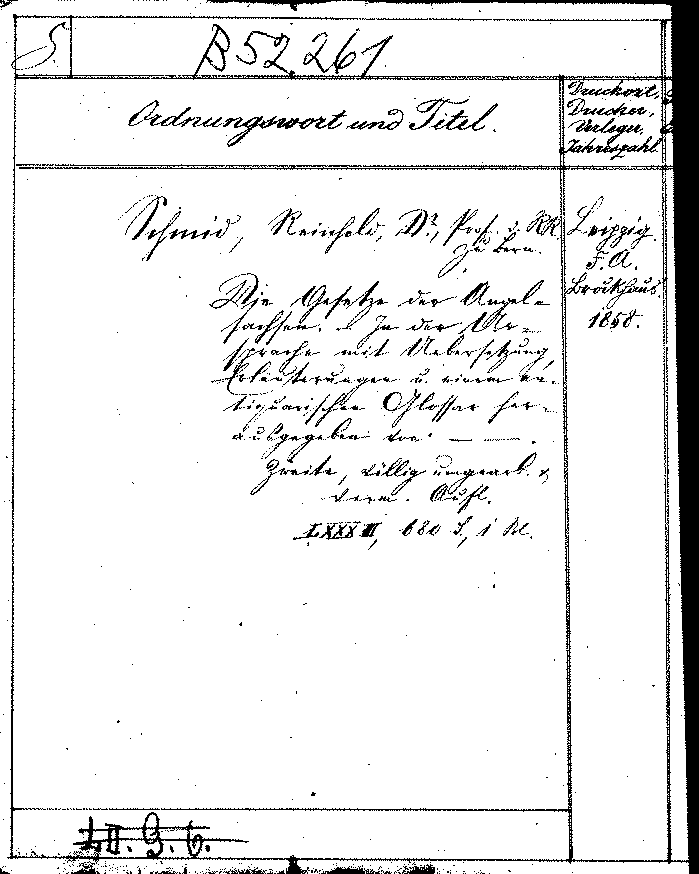 S.
B 52.261
Ordnungswort und Titel.
Druckort,
Drucker,
Verleger,
Jahreszahl
Schmid, Reinhold, Dr., Prof. d. RR.
zu Bern.
Die Gesetze der Angel-
sachsen. In der Ur-
sprache mit Uebersetzung,
Erläuterungen u. einem an-
tiquarischen Glossar her-
ausgegeben von — —.
Zweite, völlig umgearb. &
verm. Aufl.
LXXXIV, 680 S., 1 Bl.
Leipzig.
F. A.
Brockhaus.
1858.